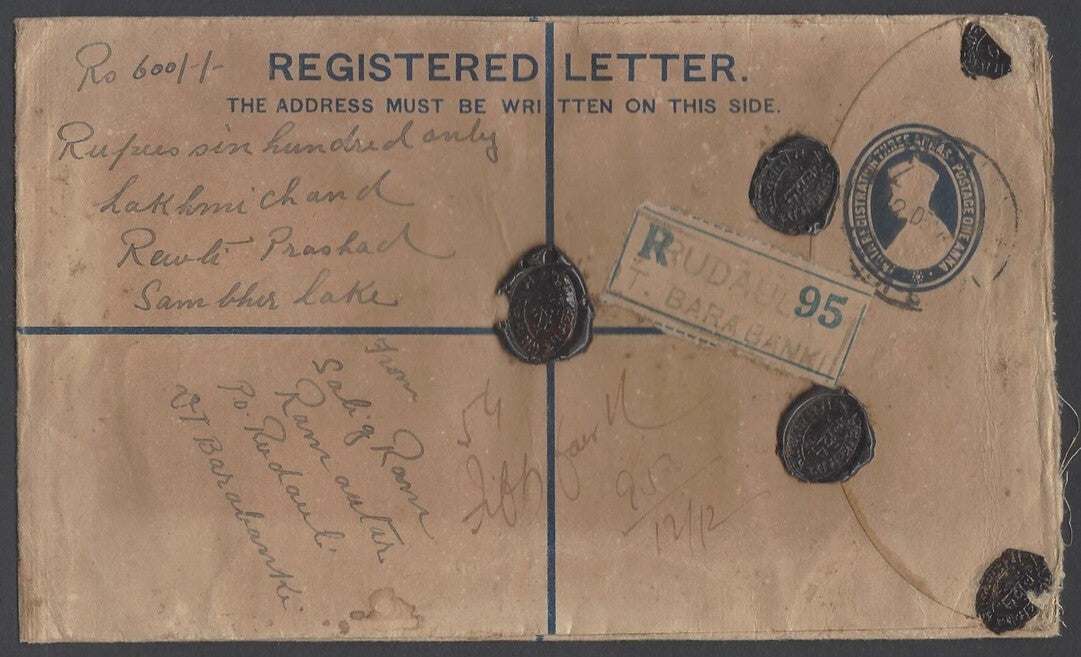 Rs 600/-/-
REGISTERED LETTER.
THE ADDRESS MUST BE WRITTEN ON THIS SIDE.
Rupees sin hundred only
Lakhmi Chand
Rewti Prashad
Sambher Lake
R RUDAULI 95
T. BARABANKI
INDIA REGISTRATION THREE ANNAS. POSTAGE ONE ANNA
From
Salig Ram
Ram autar
Po. Rudauli
DT Barabanki
54
95
12/12